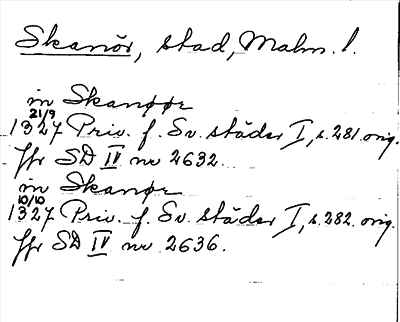 Skanör, stad, Malm. l.
in Skanøør
21/9
1327 Priv. f. Sv. städer I, s. 281. orig.
ffr SD IV nr 2632.
in Skanør
10/10
1327 Priv. f. Sv. städer I, s. 282. orig.
ffr SD IV nr 2636.